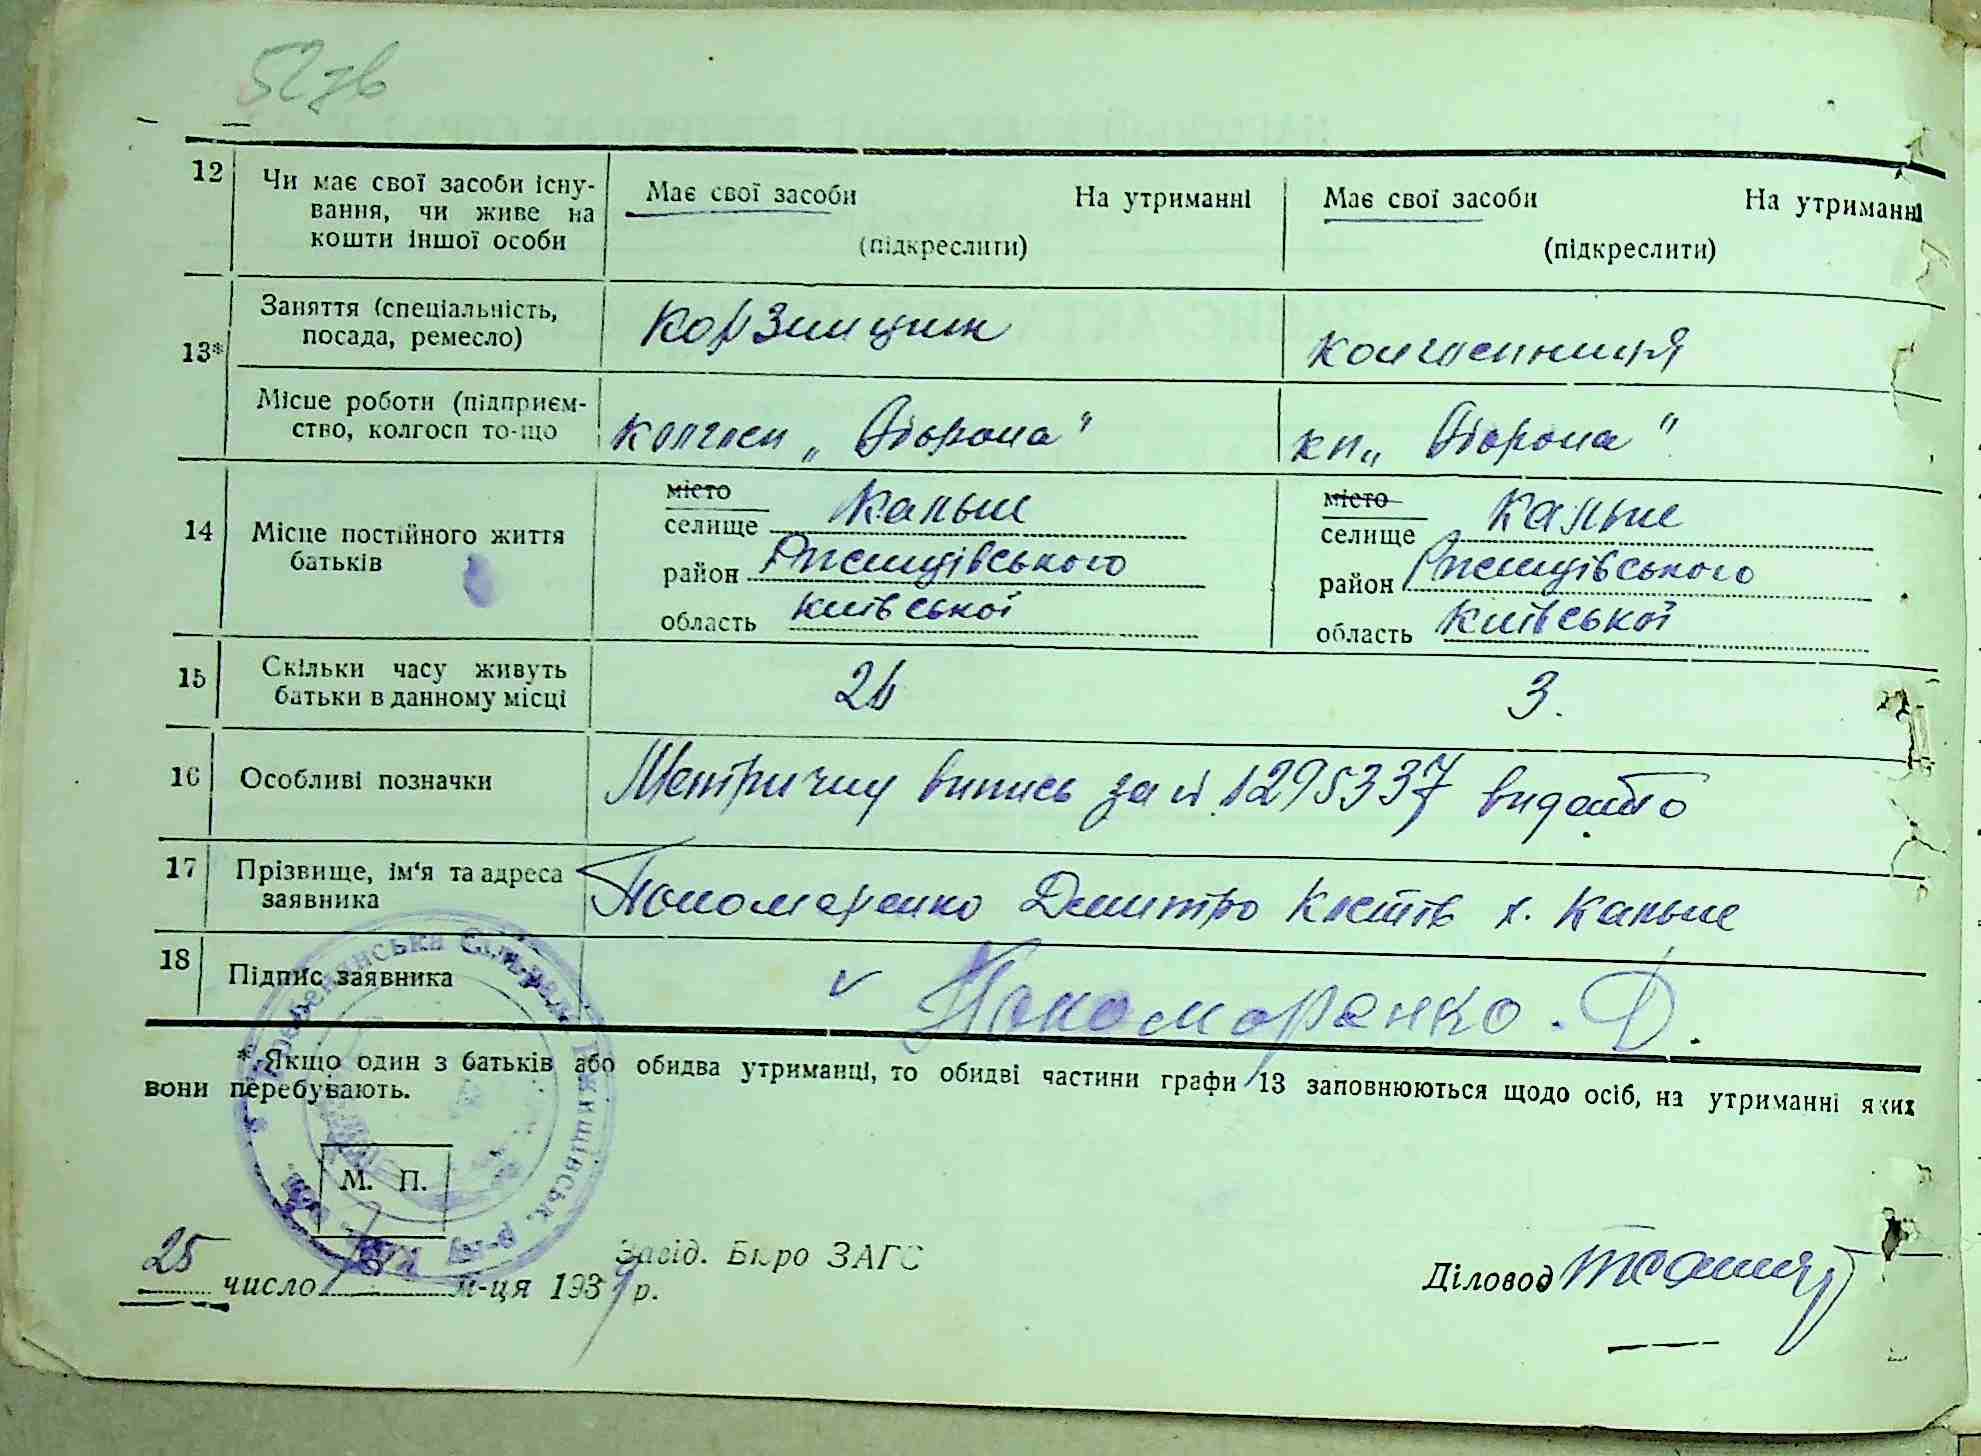 527в
12 Чи має свої засоби існу- Має свої засоби На утриманні Має свої засоби На утриманні
вання, чи живе на
кошти іншої особи (підкреслити) (підкреслити)
Заняття (спеціальність, Корзинщик колгоспниця
13* посада, ремесло)
Місце роботи (підприєм- колгосп „ Оборона “ кп „ Оборона “
ство, колгосп то-що
місто Кальне місто Кальне
14 Місце постійного життя селище селище
батьків район Ржищівського район Ржищівського
область Київської область Київської
15 Скільки часу живуть 26 3.
батьки в данному місці
16 Особливі позначки Метричну випись за № 1295337 видано
17 Прізвище, ім‘я та адреса Пономаренко Дмитро Костів х. Кальне
заявника
18 Підпис заявника Пономаренко. Д.
* Якщо один з батьків або обидва утриманці, то обидві частини графи 13 заповнюються щодо осіб, на утриманні яких
вони перебувають.
М. П.
25 число м-ця 1939 р. Завід. Бюро ЗАГС Діловод